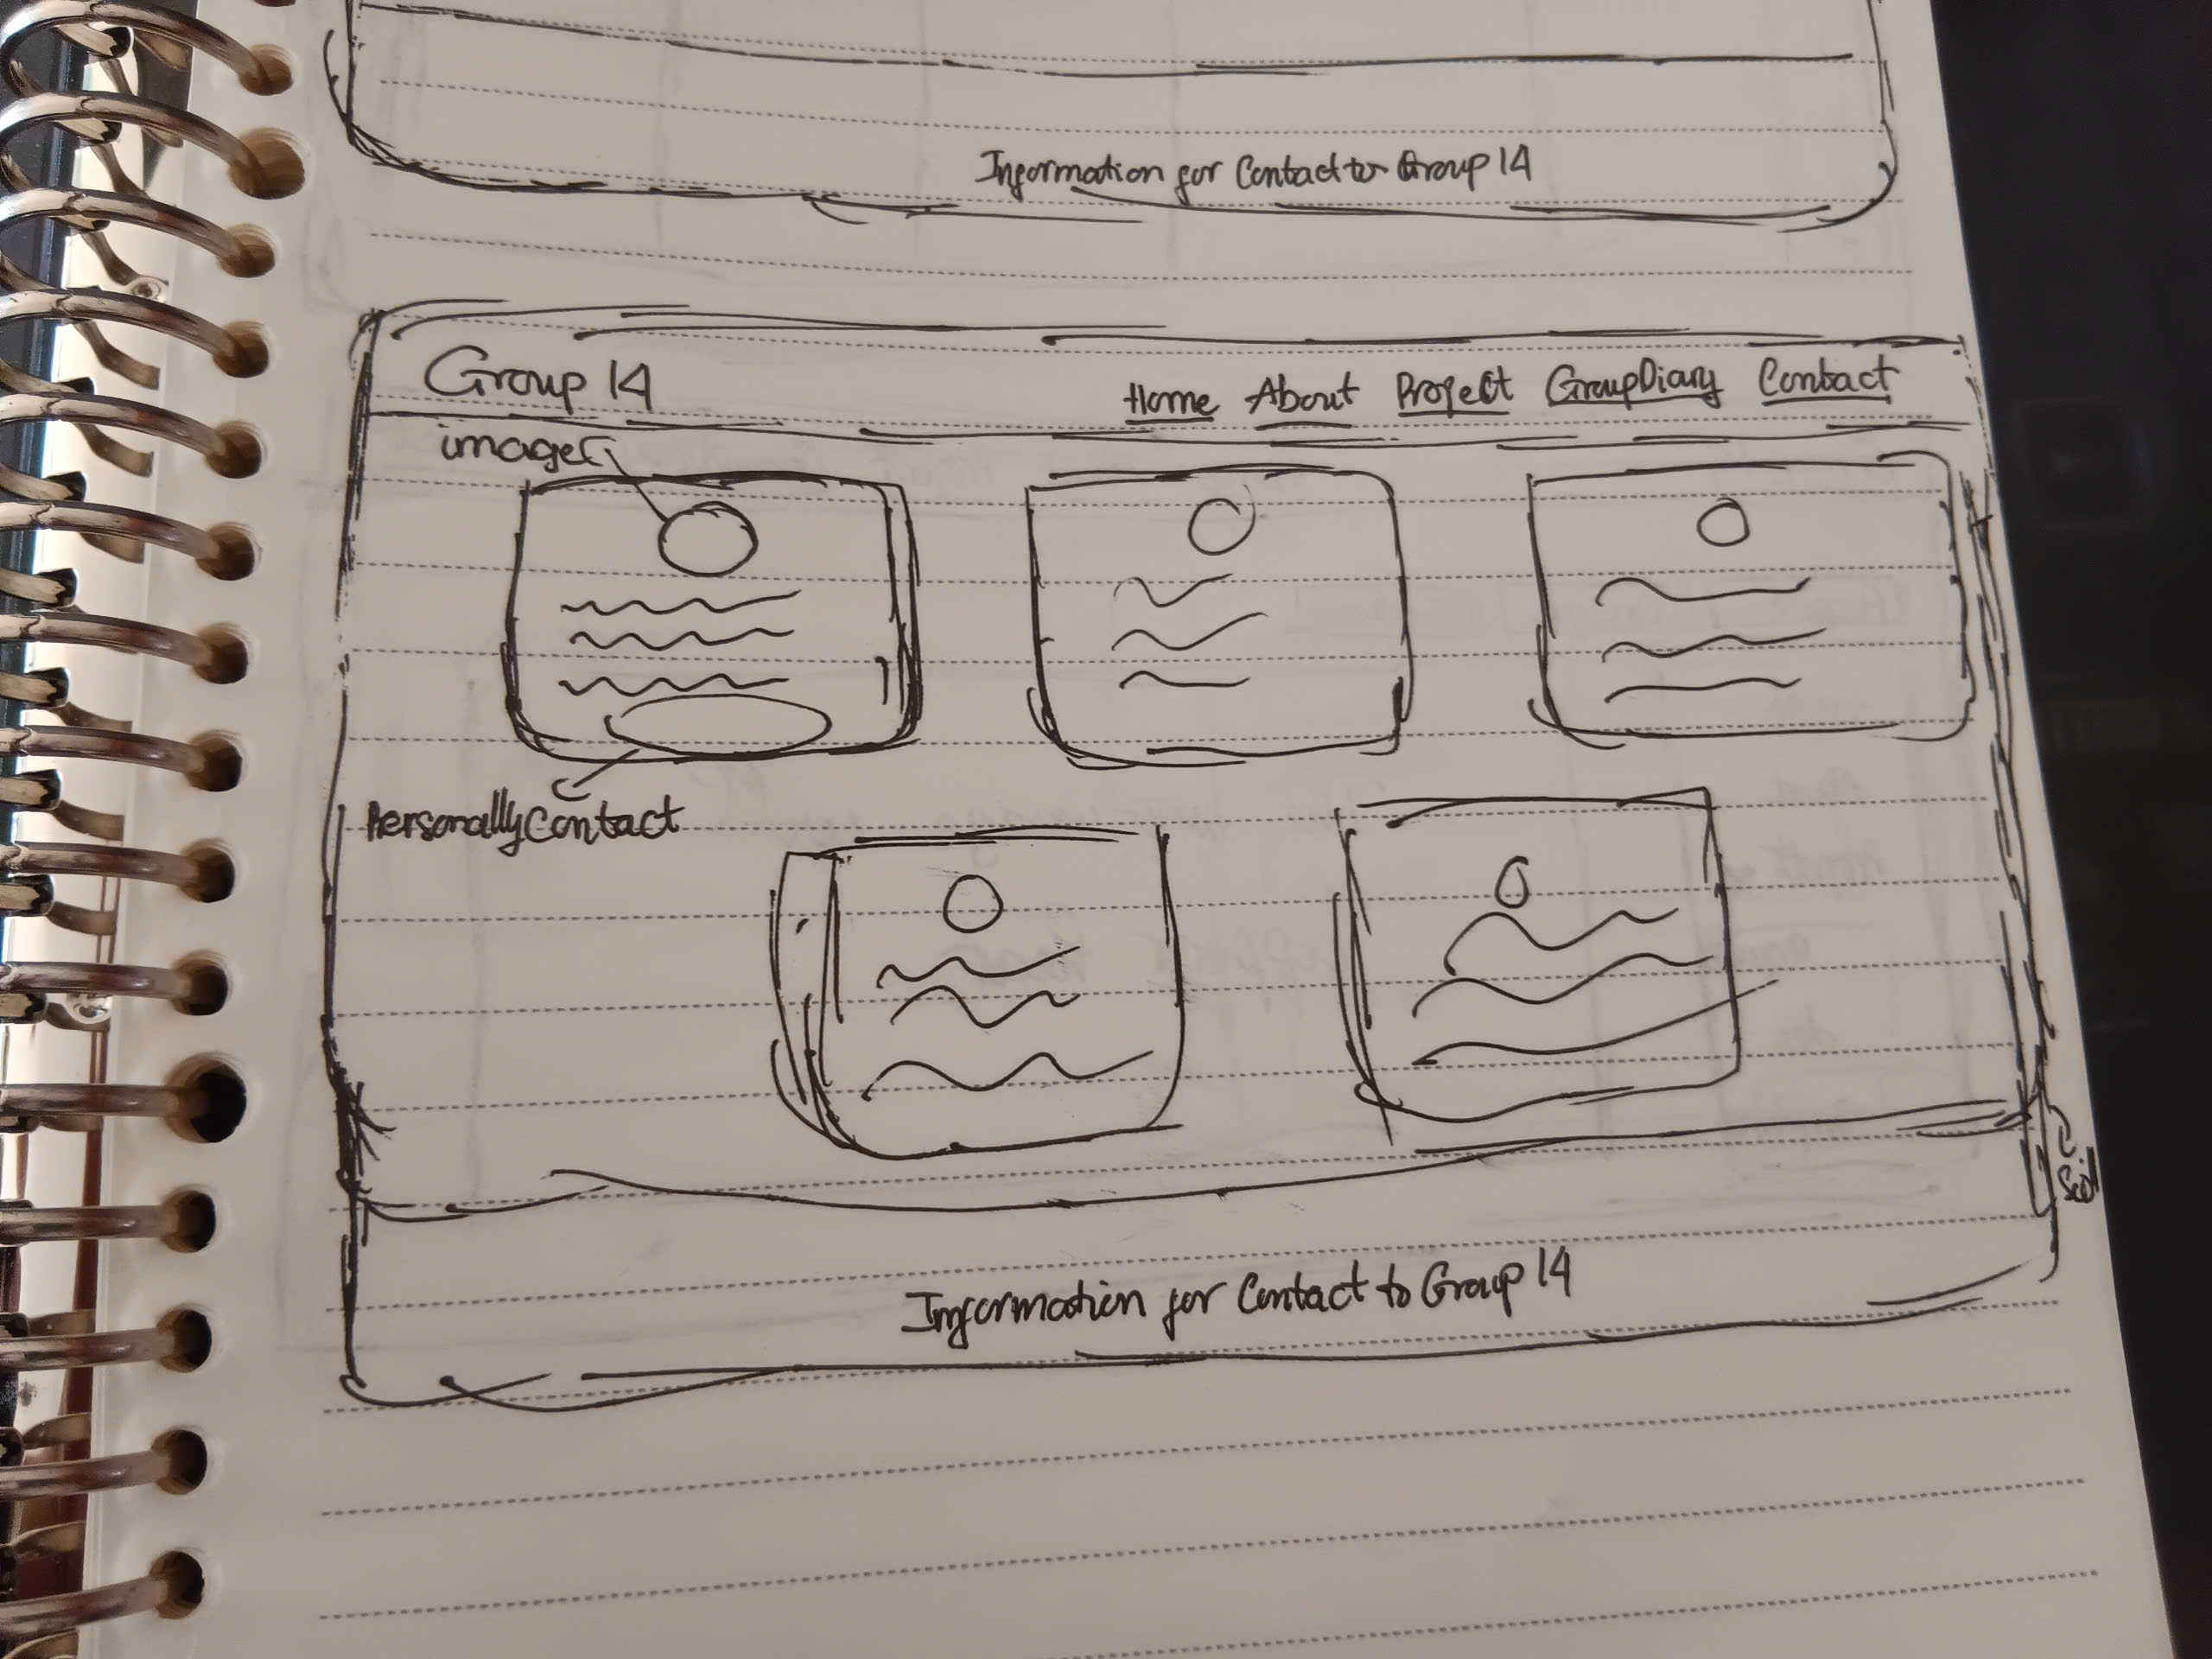 Information for Contact to Group 14
Group 14
Home About Project GroupDiary Contact
image
Personally Contact
Information for Contact to Group 14